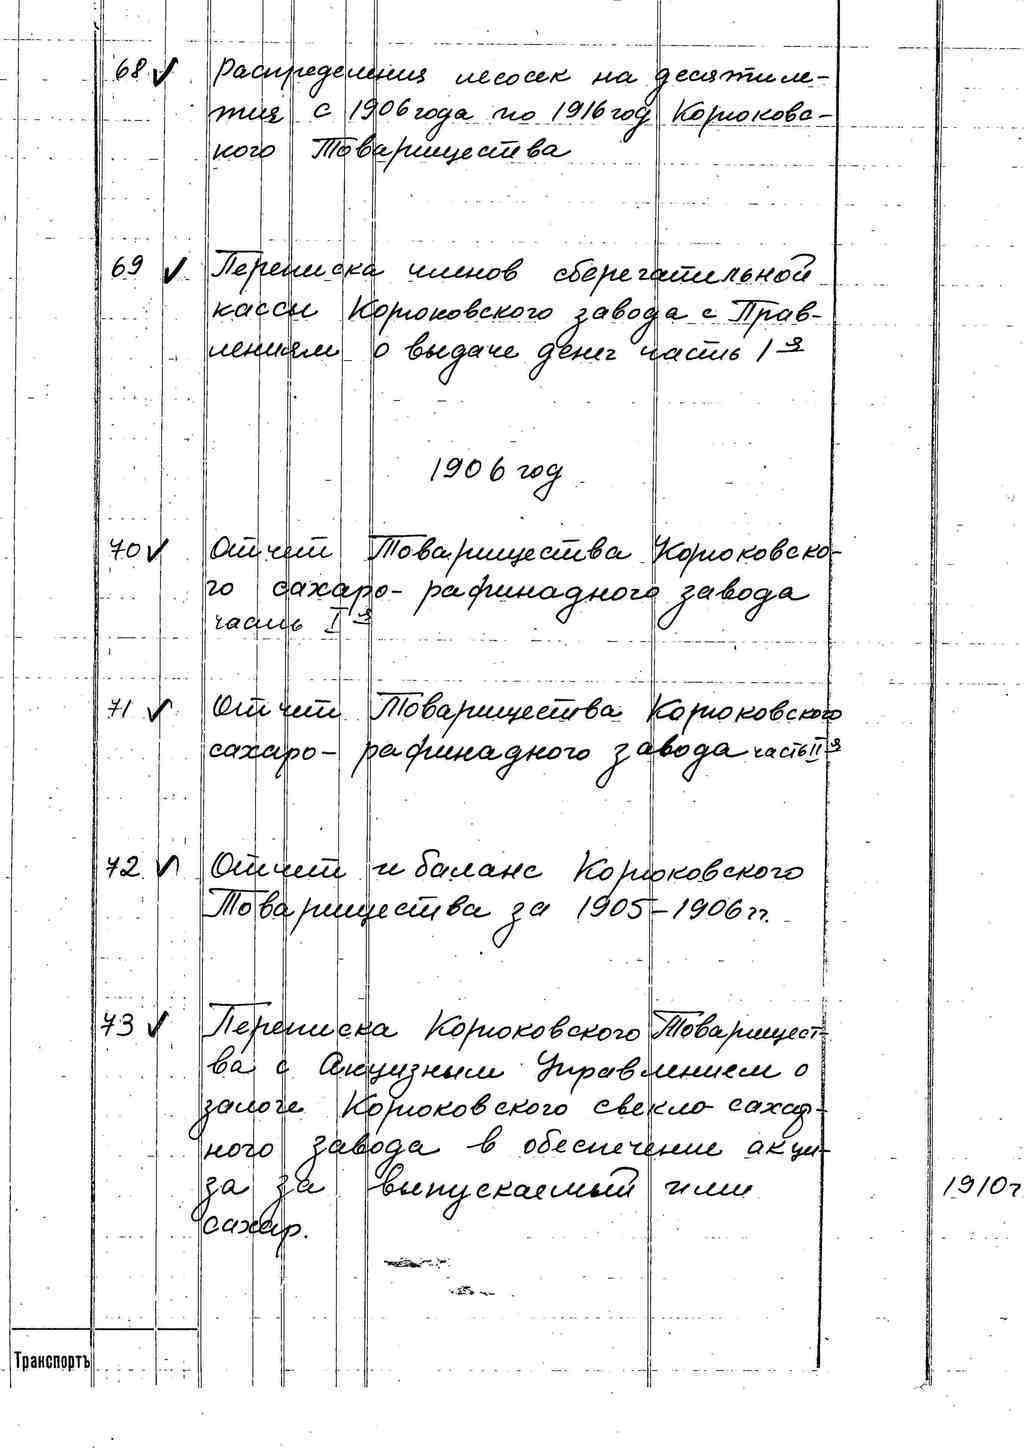 68 ✓ Распределения лесосек на десятиле-
тия с 1906 года по 1916 год Корюковс-
кого Товарищества
69 ✓ Переписка членов сберегательной
кассы Корюковского завода с Прав-
лениям о выдаче денег часть I я
1906 год
70 ✓ Отчет Товарищества Корюковско-
го сахаро-рафинадного завода
часть I я
71 ✓ Отчет Товарищества Корюковского
сахаро-рафинадного завода часть II я
72 ✓ Отчет и баланс Корюковского
Товарищества за 1905-1906 гг.
73 ✓ Переписка Корюковского Товарищест-
ва с Акцизным Управлением о
залоге Корюковского свекло-сахар-
ного завода в обеспечение акци-
за за выпускаемый ими 1910 г
сахар.
Транспортъ